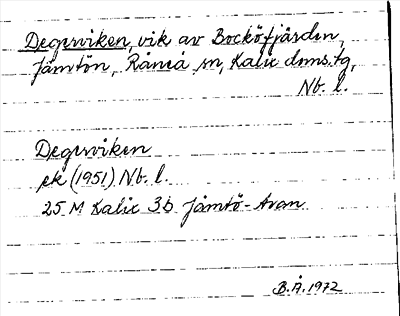 Degerviken, vik av Bocköfjärden,
Jämtön, Råneå sn, Kalix dms.tg,
Nb. l.
Degerviken
ek (1951) Nb. l.
25 M Kalix 3b Jämtö-Avan
B.Å. 1972